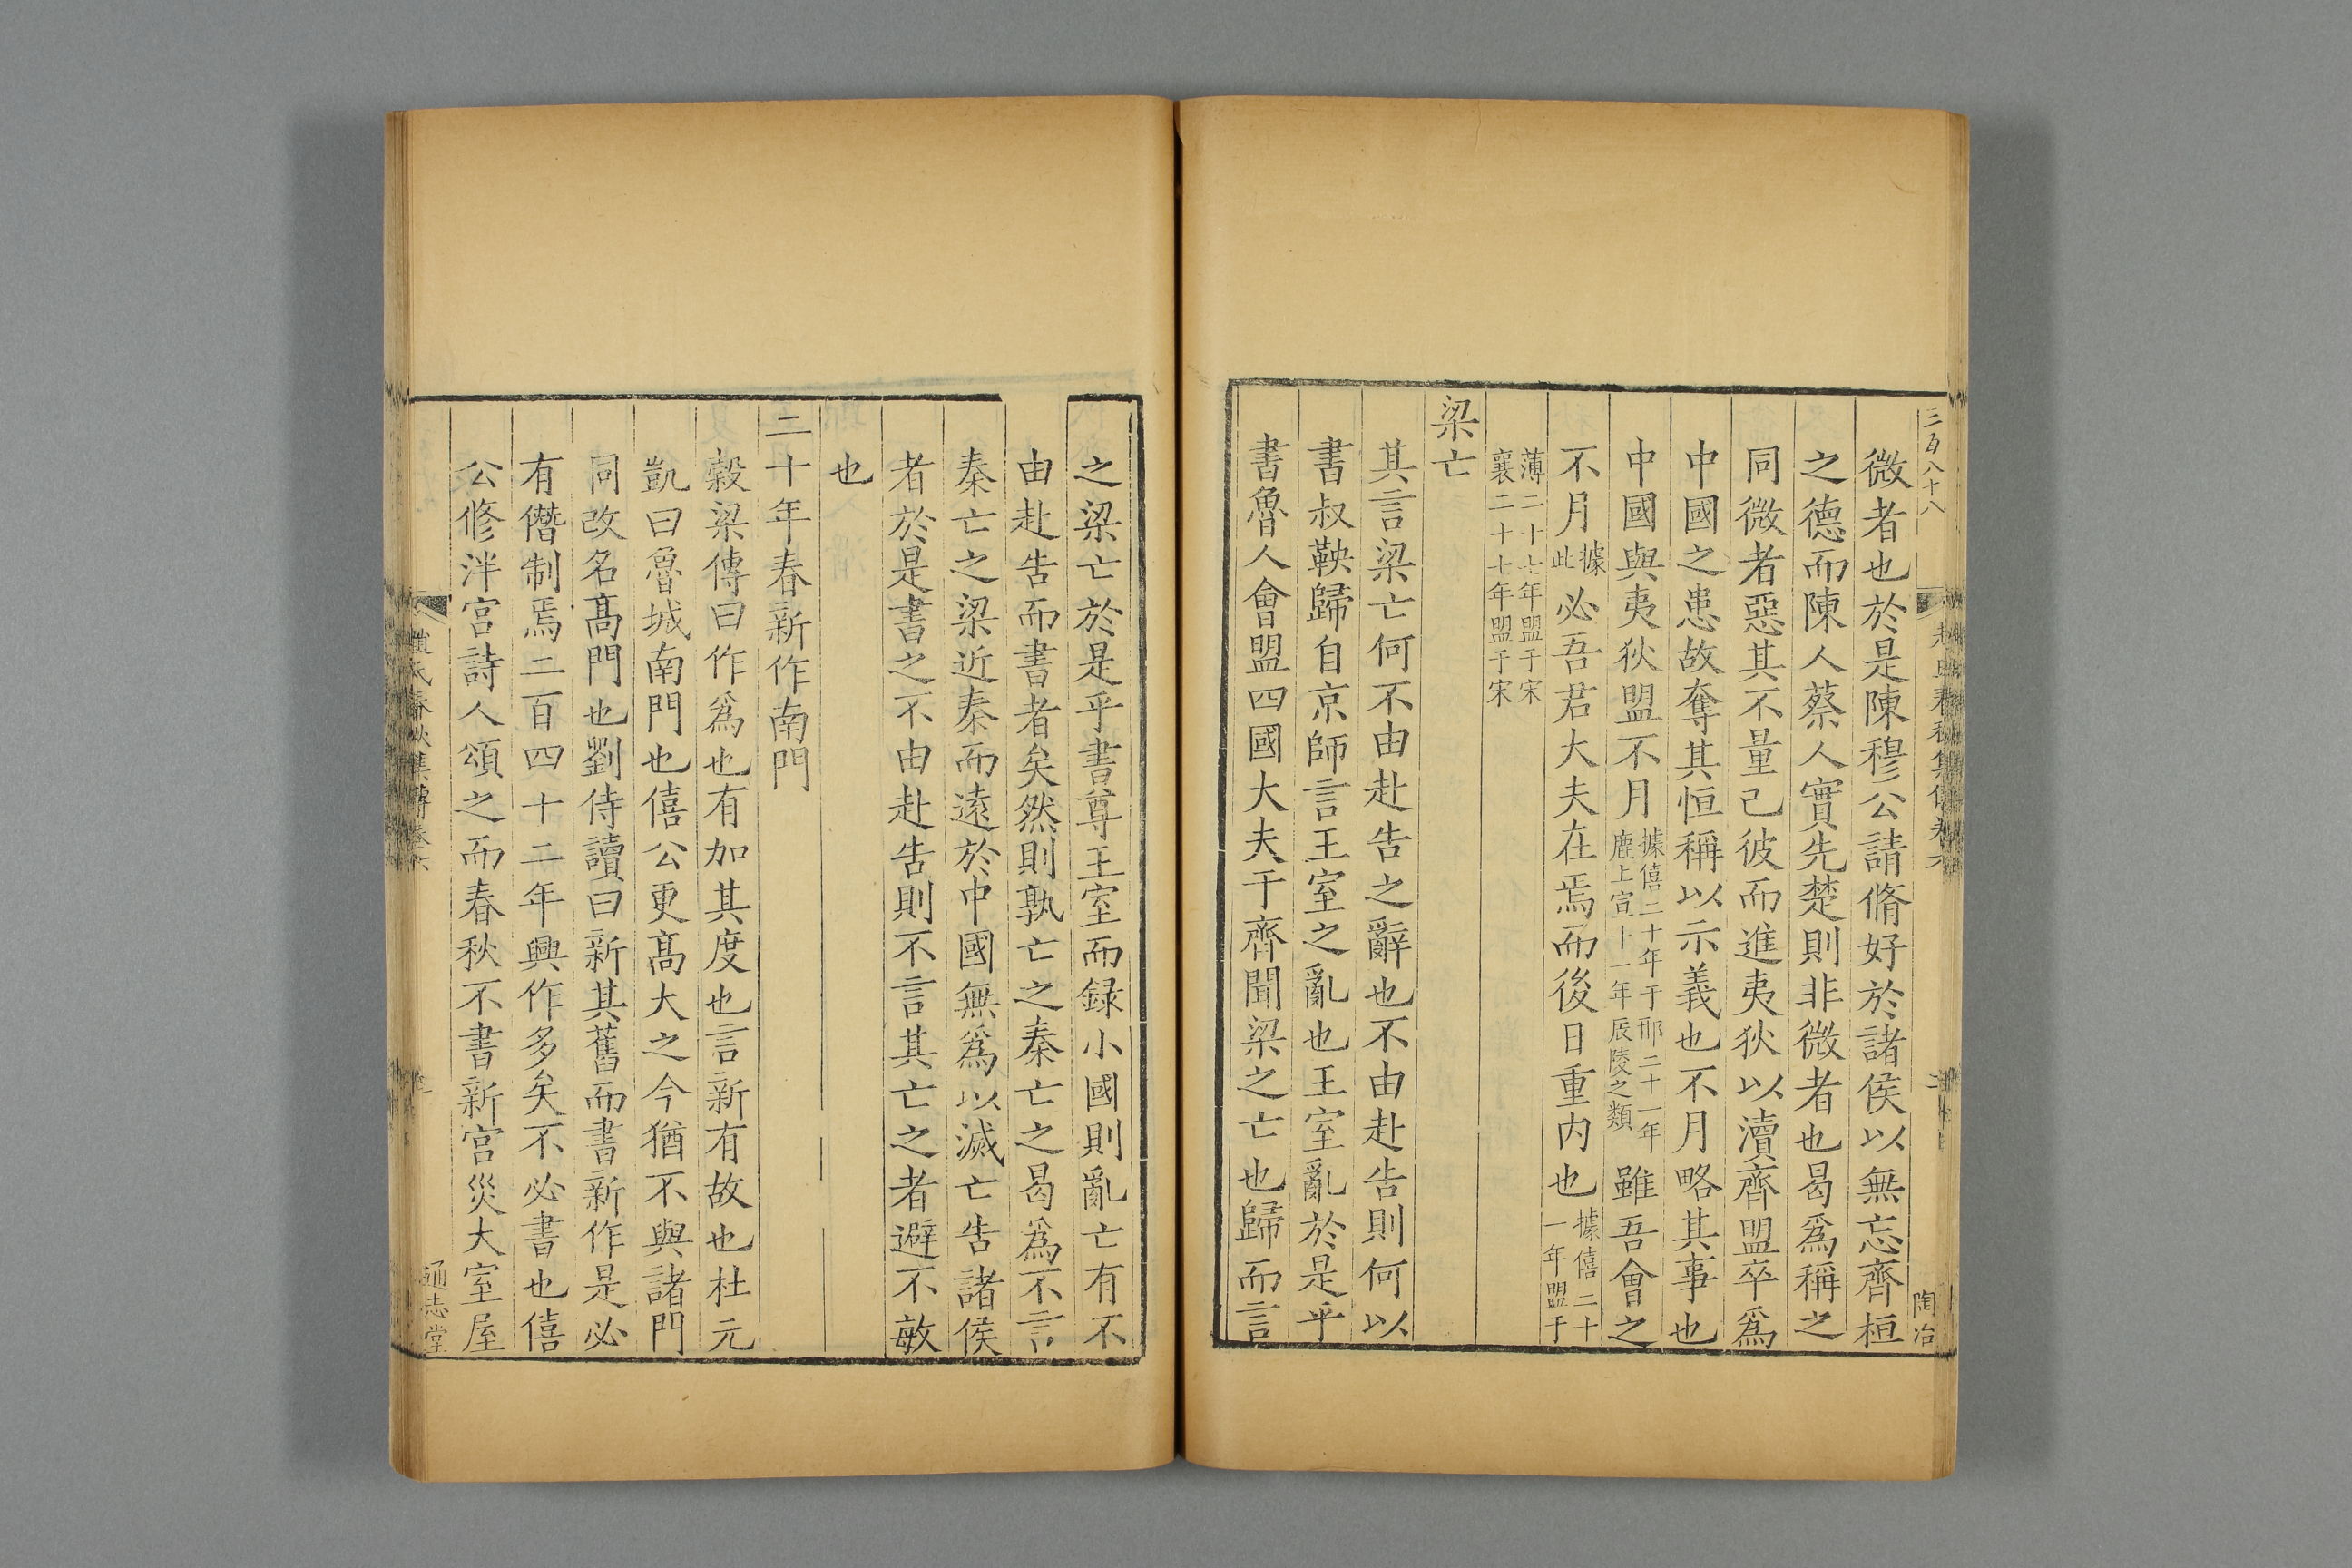 三百八十八
陶冶
微者也於是陳穆公請脩好於諸侯以無忘齊桓
之德而陳人蔡人實先楚則非微者也曷爲稱之
同微者惡其不量己彼而進夷狄以瀆齊盟卒爲
中國之患故奪其恒稱以示義也不月略其事也
中國與夷狄盟不月據僖二十年于邢二十一年鹿上宣十一年辰陵之類雖吾會之
不月據此必吾君大夫在焉而後日重内也據僖二十一年盟于
薄二十七年盟于宋襄二十七年盟于宋
梁亡
其言梁亡何不由赴告之辭也不由赴告則何以
書叔鞅歸自京師言王室之亂也王室亂於是乎
書魯人會盟四國大夫于齊聞梁之亡也歸而言
之梁亡於是乎書尊王室而録小國則亂亡有不
由赴告而書者矣然則孰亡之秦亡之曷爲不言
秦亡之梁近秦而遠於中國無爲以滅亡告諸侯
者於是書之不由赴告則不言其亡之者避不敏
也
二十年春新作南門
穀梁傳曰作爲也有加其度也言新有故也杜元
凱曰魯城南門也僖公更高大之今猶不與諸門
同改名高門也劉侍讀曰新其舊而書新作是必
有僭制焉二百四十二年興作多矣不必書也僖
公修泮宫詩人頌之而春秋不書新宫災大室屋
趙氏春秋集傳卷六
通志堂